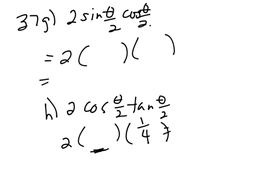 37g) 2 sin θ/2 cos θ/2.
= 2 (    ) (    )
=
h) 2 cos θ/2 tan θ/2
2 ( _ ) ( 1/4